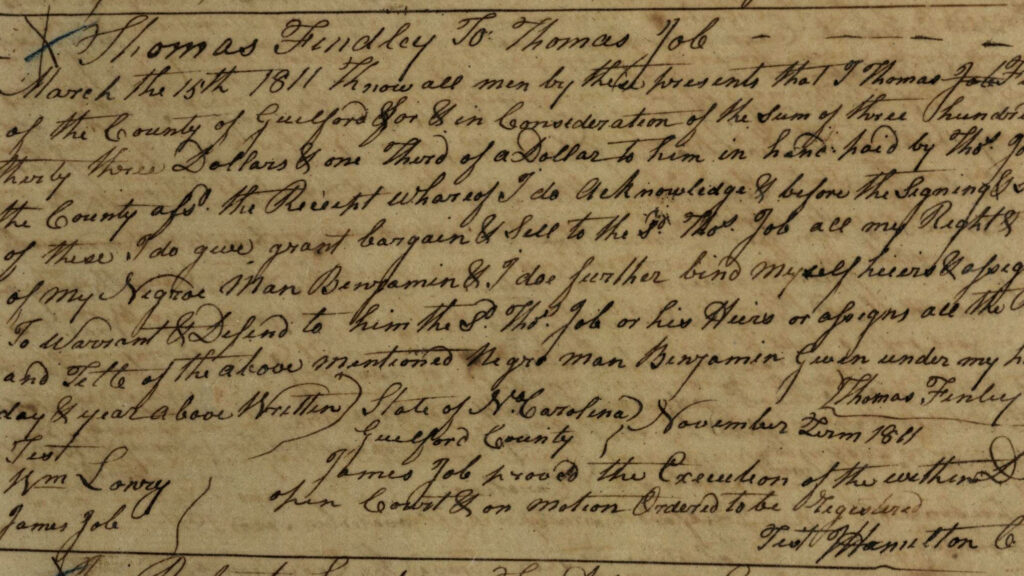 Thomas Findley To Thomas Job
March the 15th 1811 Know all men by these presents that I Thomas Job
of the County of Guilford for & in Consideration of the Sum of three hundred
thirty three Dollars & one Third of a Dollar to him in hand paid by Thos. Jo
the County afsd. the Reciept whareof I do acknowledge & before the Signing &
of these I do give grant bargain & Sell to the Sd. Thos. Job all my Right &
of my Negroe Man Benjamin & I doe further bind myself heiers & assigns
To Warrant & Defend to him the Sd. Thos. Job or his Heirs or assigns all the
and Title of the above mentioned Negro man Benjamin Given under my h
day & year above Written) Thomas Finley
State of No. Carolina) November Term 1811
Guilford County
Test James Job proved the Execution of the within D
Wm Lowry open Court & on motion Ordered to be Registered
James Job Test Hamilton C